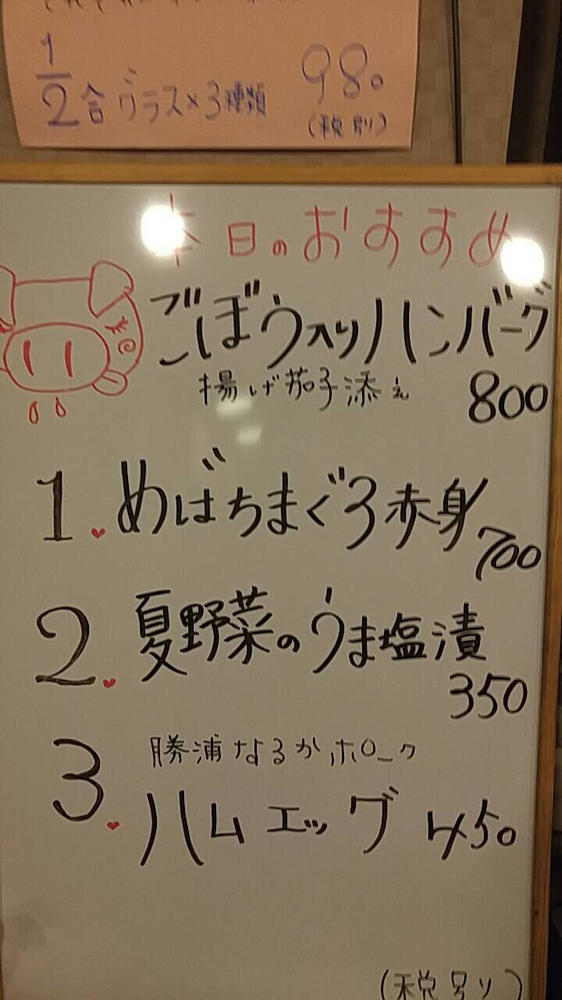 1/2合グラス×3種類 980
(税別)
本日のおすすめ
ごぼう入りハンバーグ
揚げ茄子添え 800
1. めばちまぐろ赤身 700
2. 夏野菜のうま塩漬
350
3. 勝浦なるかポーク
ハムエッグ 450
(税別)